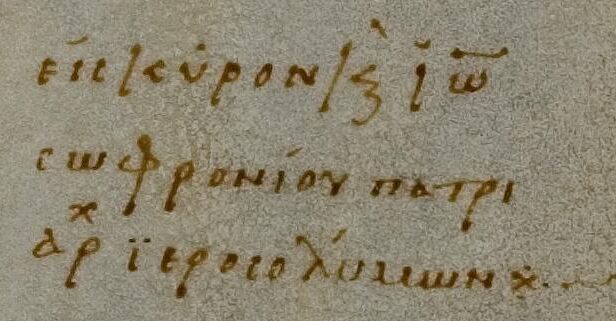 εἰς κύρον ϗ ἰω̅
σωφρονίου πατρι
άρχ ϊεροσολύμων